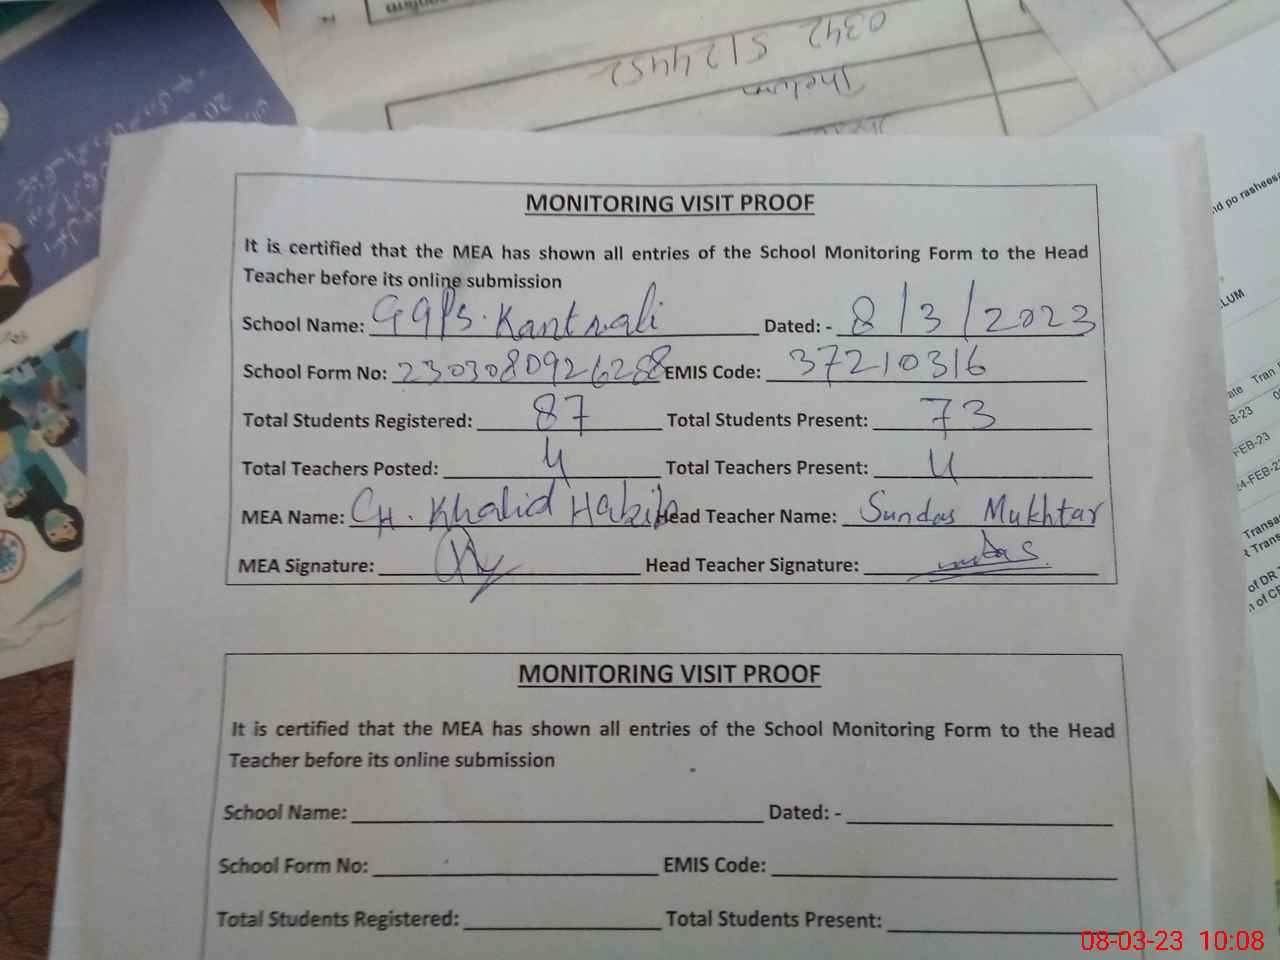 0342 5124452
Jhelum
MONITORING VISIT PROOF
It is certified that the MEA has shown all entries of the School Monitoring Form to the Head
Teacher before its online submission
School Name: GGPS. Kantwali Dated: - 8/3/2023
School Form No: 2303080926288 EMIS Code: 37210316
Total Students Registered: 87 Total Students Present: 73
Total Teachers Posted: 4 Total Teachers Present: 4
MEA Name: CH. Khalid Habib Head Teacher Name: Sundas Mukhtar
MEA Signature: Head Teacher Signature:
MONITORING VISIT PROOF
It is certified that the MEA has shown all entries of the School Monitoring Form to the Head
Teacher before its online submission
School Name: Dated: -
School Form No: EMIS Code:
Total Students Registered: Total Students Present:
nd po rashees
LUM
ate Tran
B-23
FEB-23
24-FEB-23
Transa
Trans
of DR
of CF
08-03-23 10:08